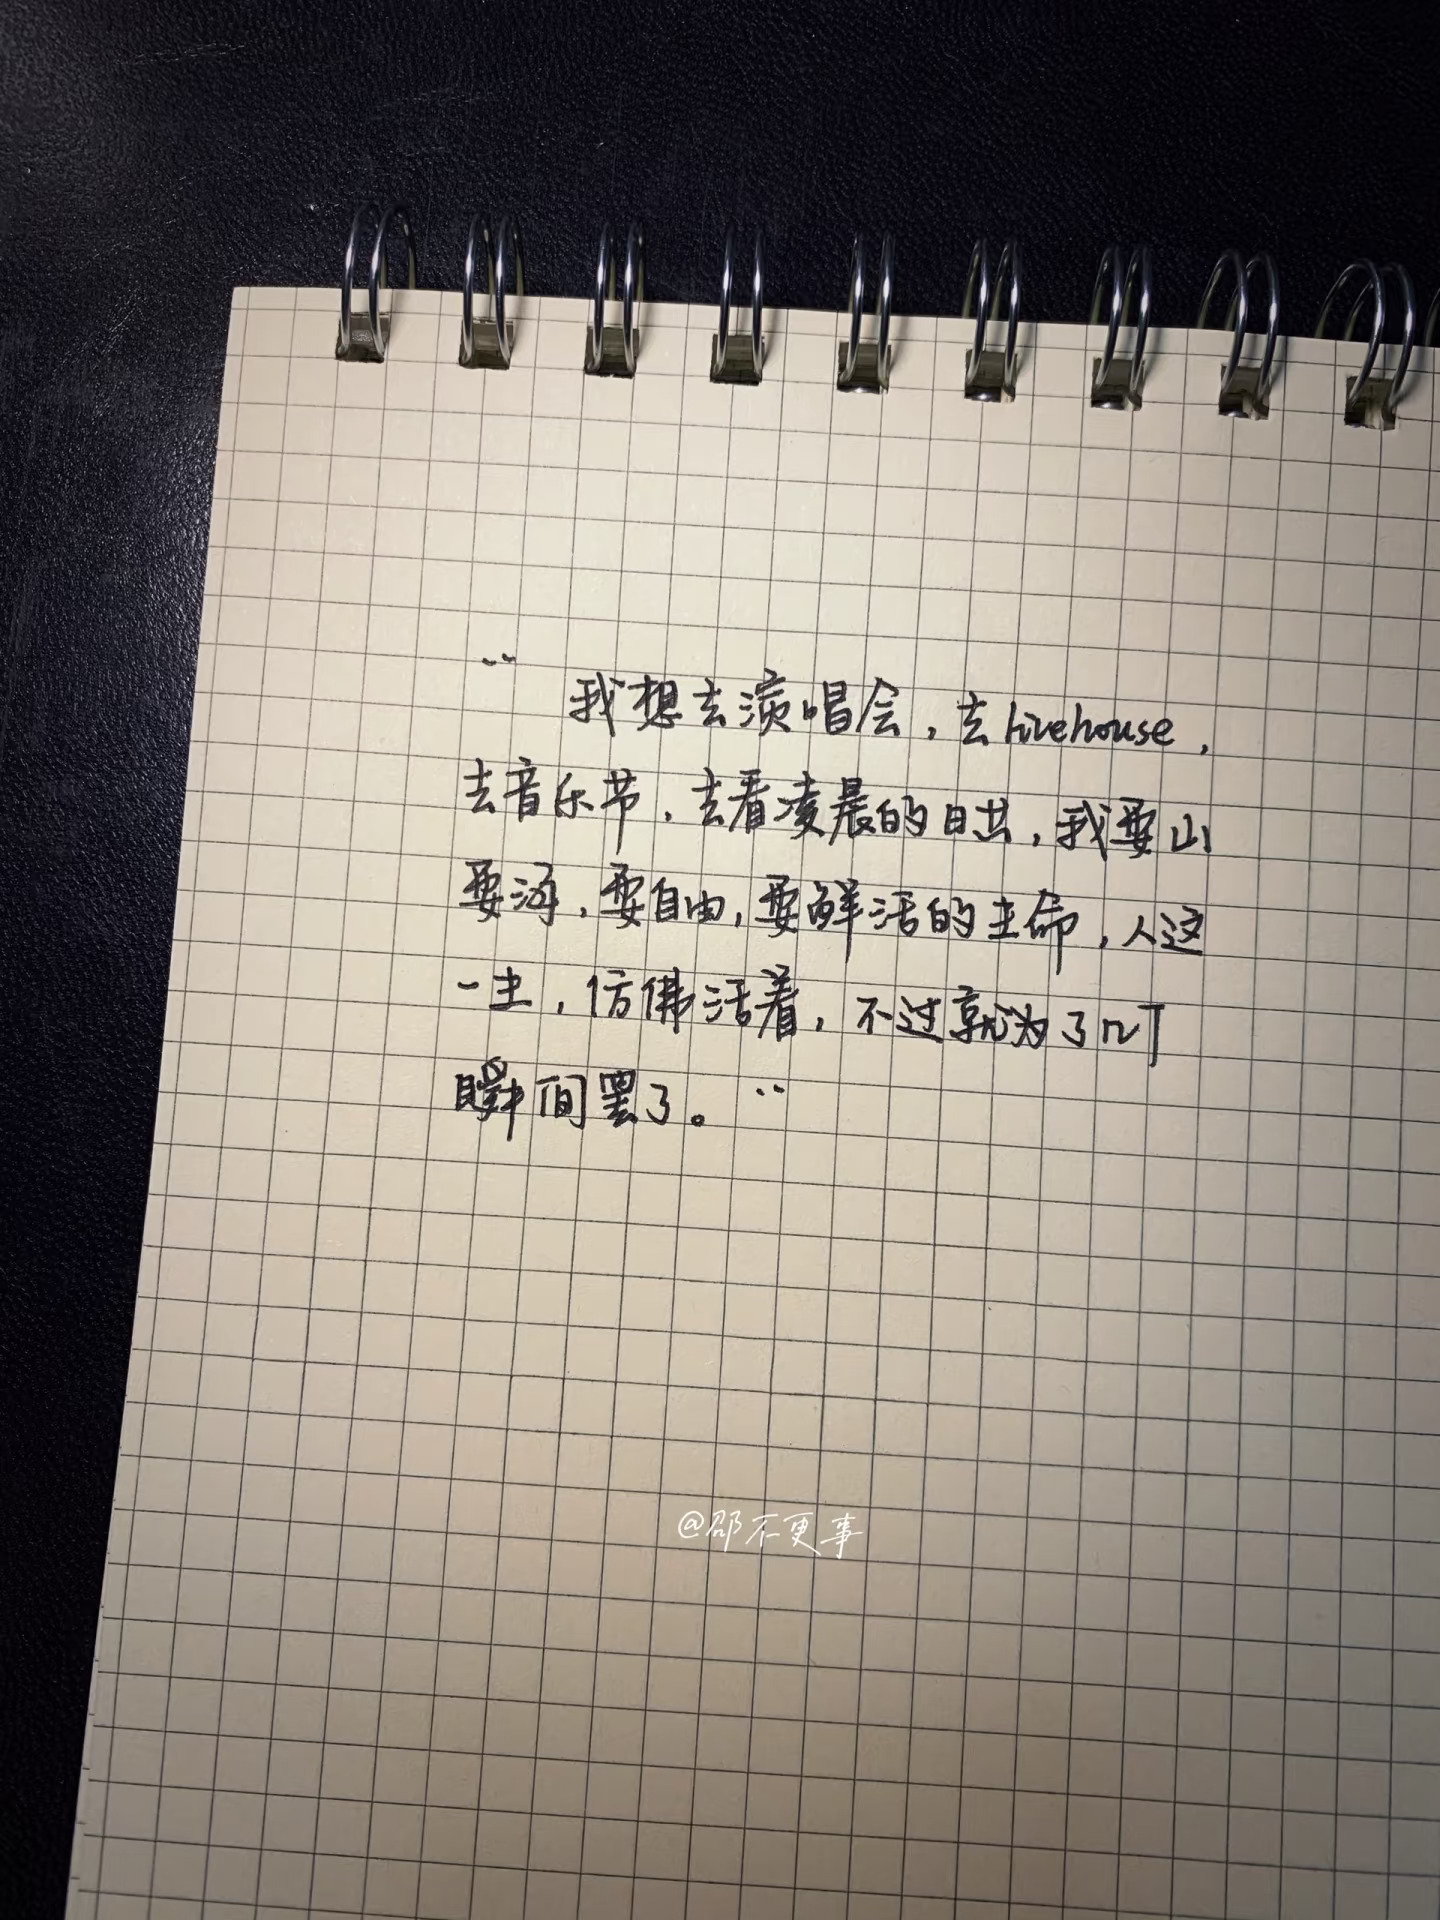 “ 我想去演唱会，去livehouse，
去音乐节，去看凌晨的日出，我要山
要海，要自由，要鲜活的生命，人这
一生，仿佛活着，不过就为了几个
瞬间罢了。”
@邵不更事